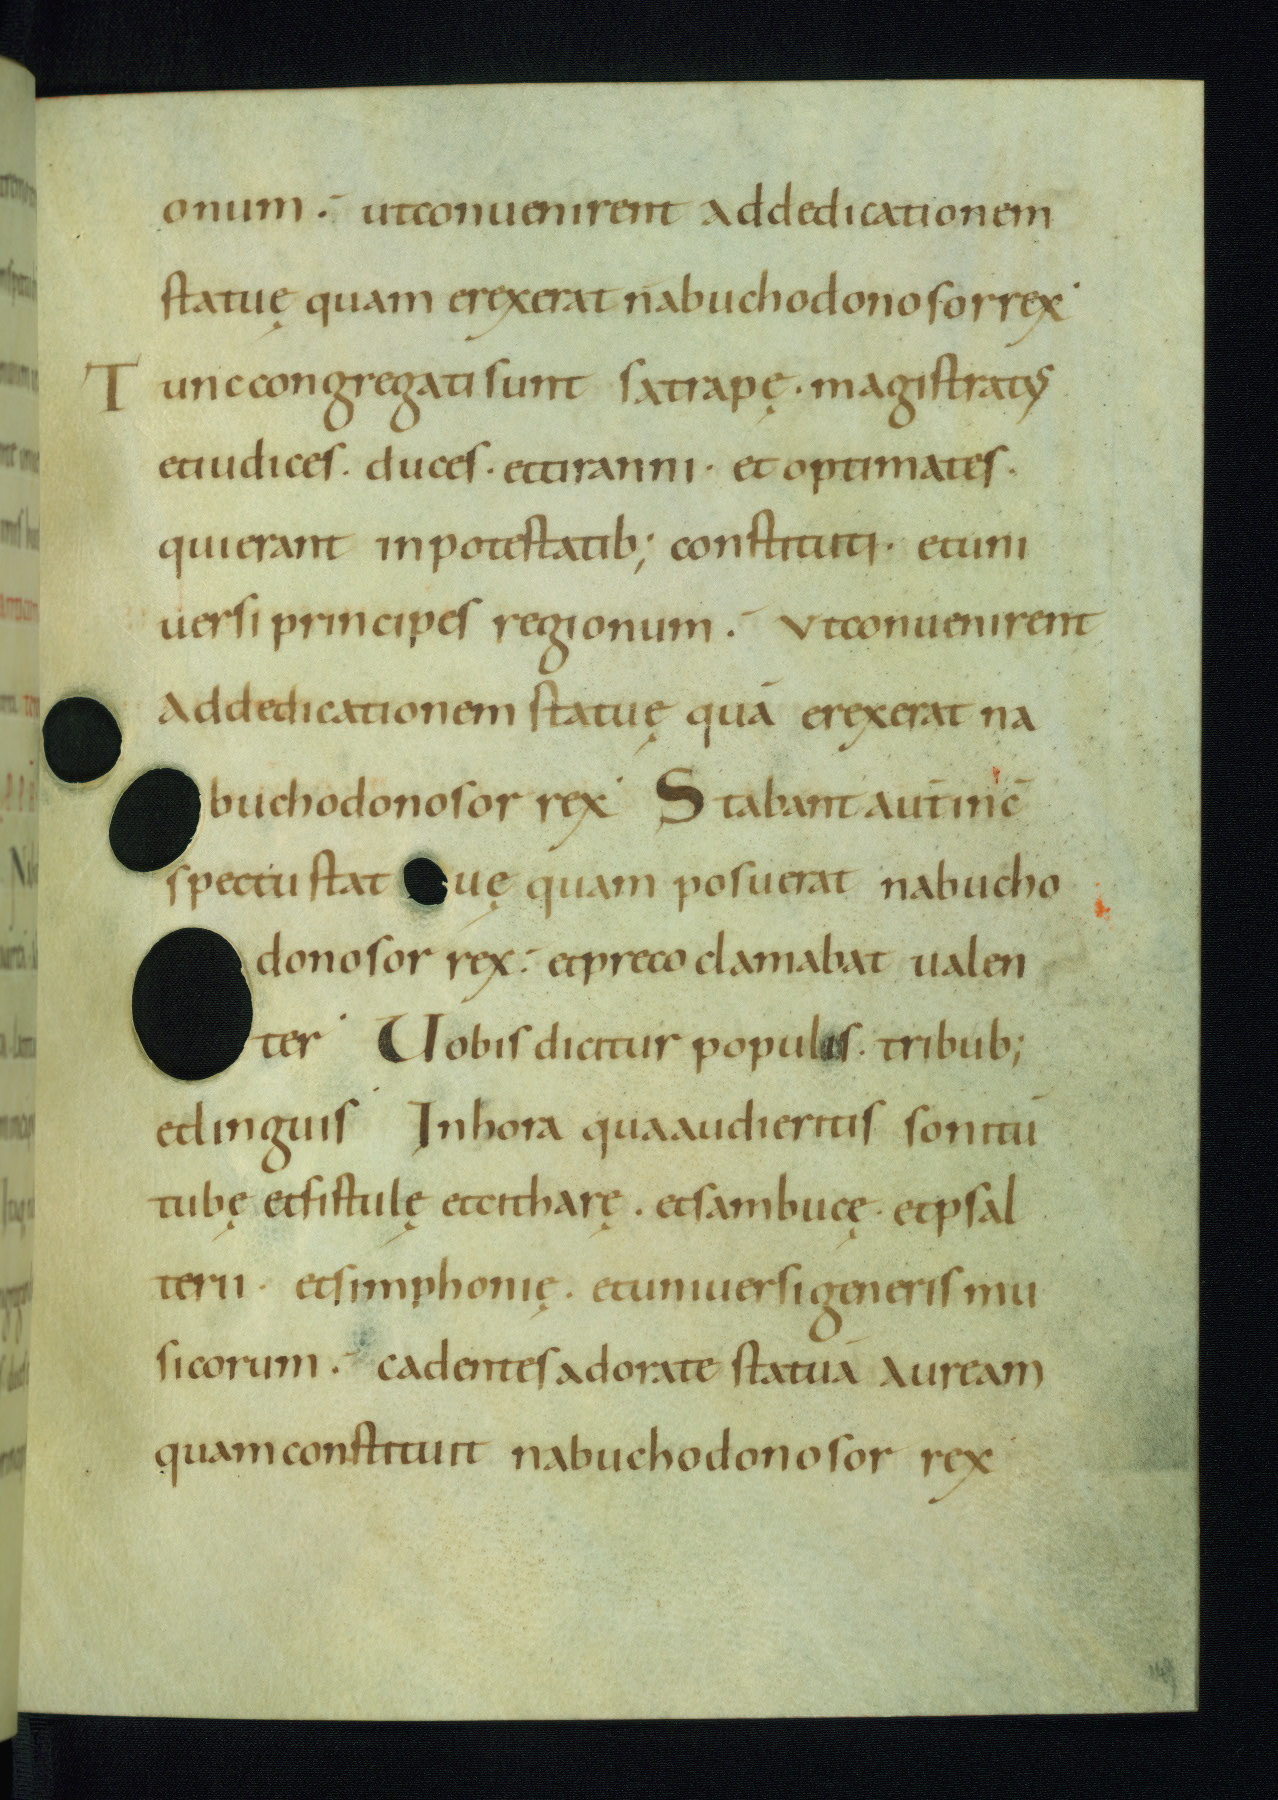 onum. utconuenirent addedicationem
statuę quam erexerat nabuchodonosor rex
Tunc congregati sunt satrapę · magistratꝰ
et iudices · duces · et tiranni · et optimates ·
qui erant in potestatib; constituti · et uni
uersi principes regionum. Vt conuenirent
ad dedicationem statuę quā erexerat na
buchodonosor rex Stabant aut̄ in c̄
spectu statuę quam posuerat nabucho
donosor rex. et preco clamabat ualen
ter Uobis dicitur populis · tribub;
et linguis In hora qua audieritis sonitū
tubę et fistulę et citharę · et sambucę · et psal
terii · et simphonię · et uniuersi generis mu
sicorum. cadentes adorate statuā auream
quam constituit nabuchodonosor rex